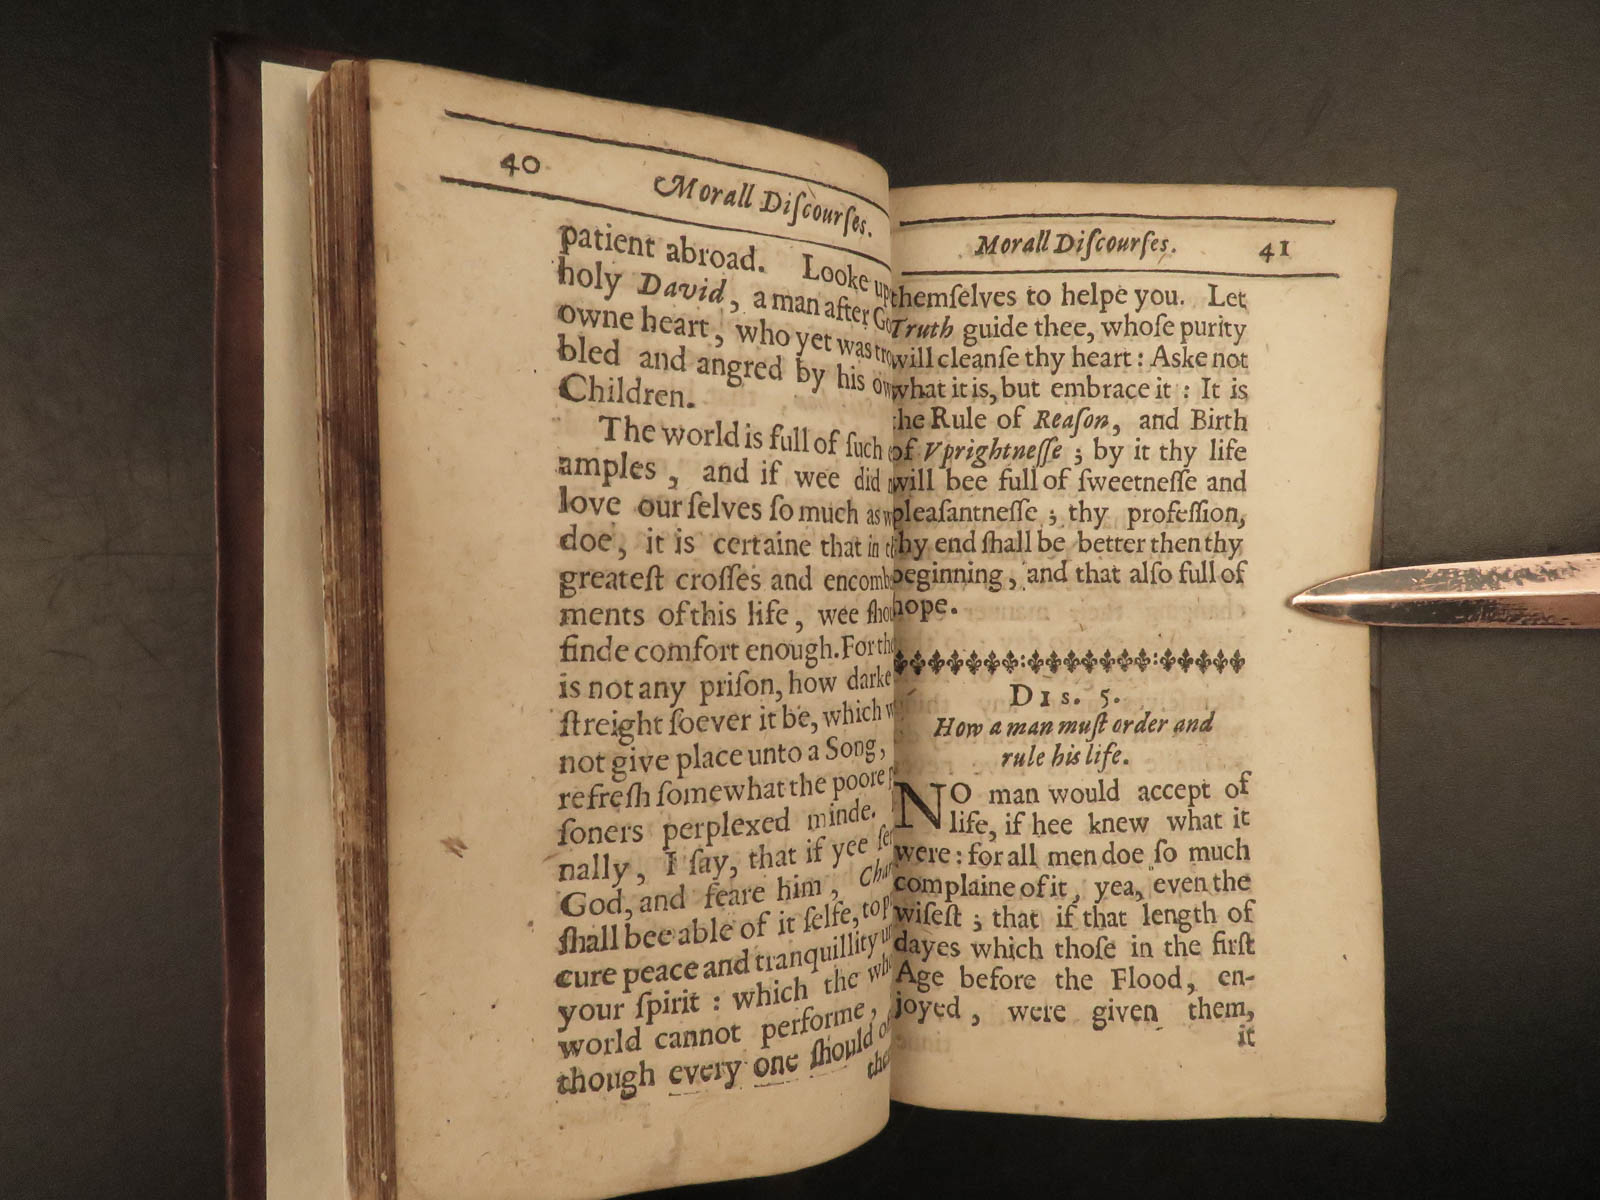 40
Morall Diſcourſes.
patient abroad. Looke up
holy David, a man after
owne heart, who yet was
bled and angred by his
Children.
The world is full of ſuch
amples, and if wee did
love our ſelves ſo much as
doe, it is certaine that in
greateſt croſſes and
ments of this life, wee
finde comfort enough. For
is not any priſon, how darke
ſtreight ſoever it be, which
not give place unto a Song,
refreſh ſomewhat the poore
ſoners perplexed minde.
nally, I ſay, that if yee
God, and feare him,
ſhall bee able of it ſelfe, to
cure peace and tranquillity
your ſpirit : which the
world cannot performe,
though every one ſhould
Morall Diſcourſes. 41
themſelves to helpe you. Let
Truth guide thee, whoſe purity
will cleanſe thy heart : Aske not
what it is, but embrace it : It is
the Rule of Reaſon, and Birth
of Vprightneſſe ; by it thy life
will bee full of ſweetneſſe and
pleaſantneſſe ; thy profeſſion,
thy end ſhall be better then thy
beginning, and that alſo full of
hope.
DIS. 5.
How a man muſt order and
rule his life.
NO man would accept of
life, if hee knew what it
were : for all men doe ſo much
complaine of it, yea, even the
wiſeſt ; that if that length of
dayes which thoſe in the firſt
Age before the Flood, en-
joyed, were given them,
it